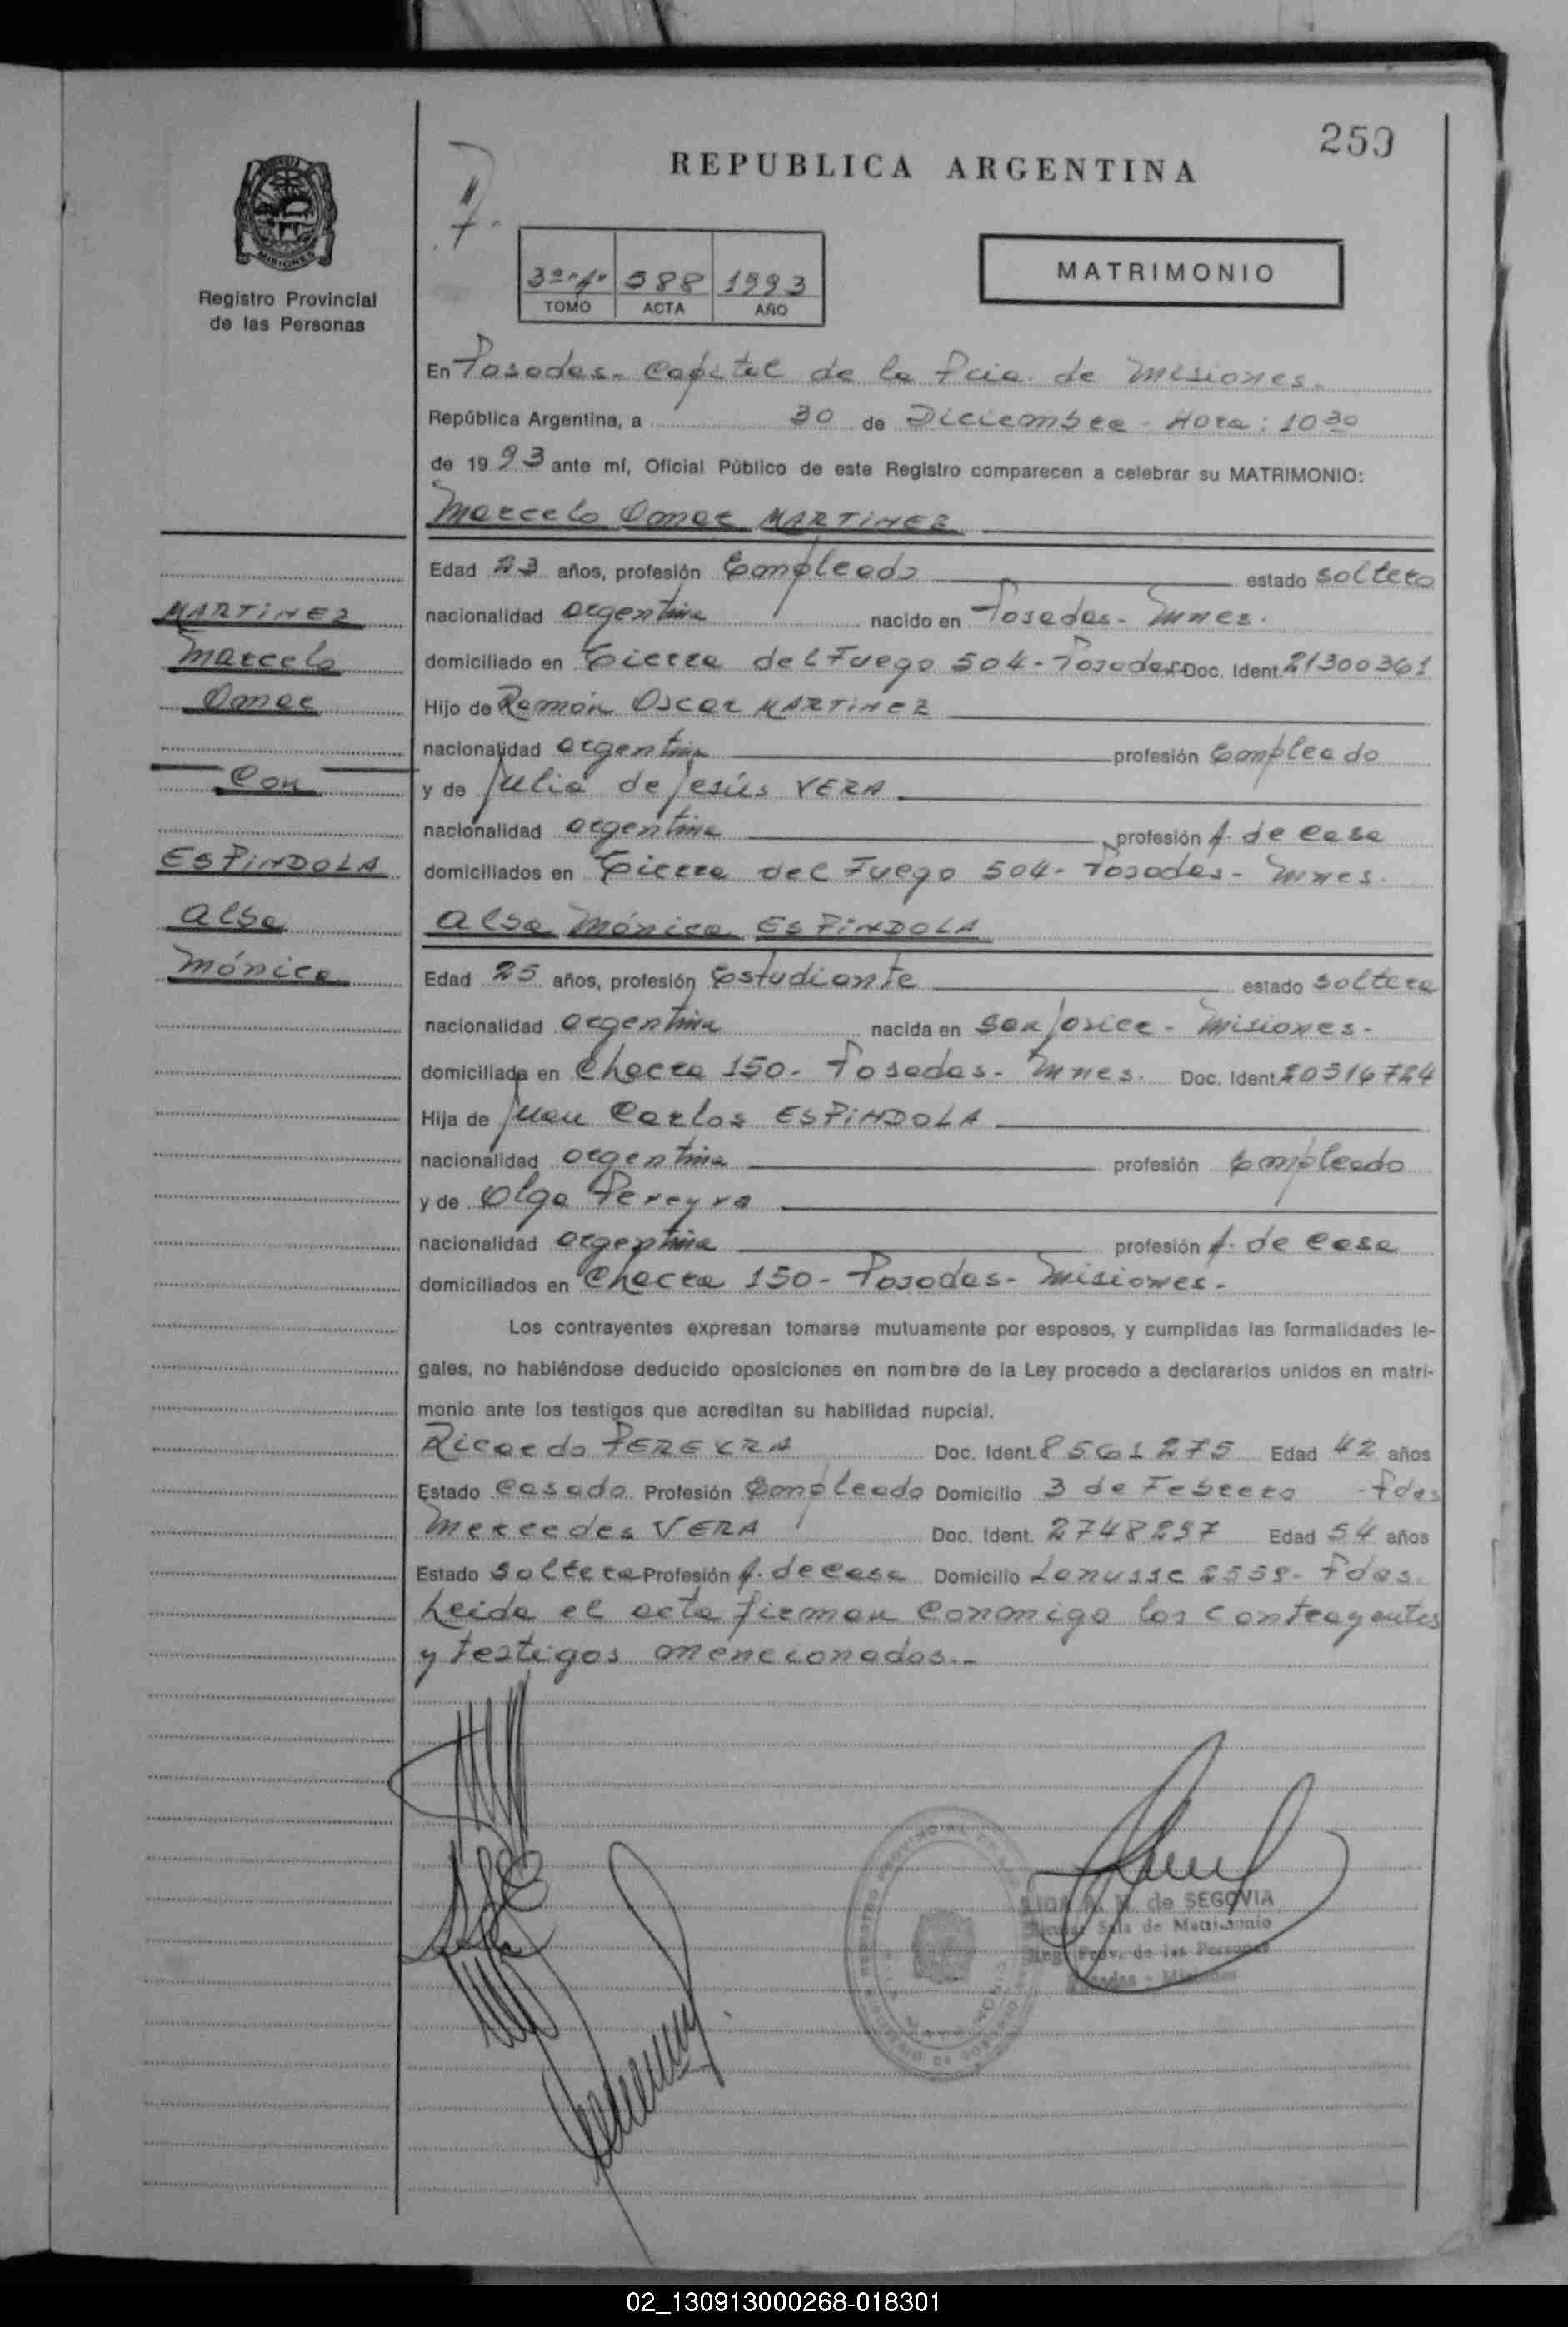 259
REPUBLICA ARGENTINA
MISIONES
Registro Provincial
de las Personas
588 1993
TOMO ACTA AÑO
MATRIMONIO
En Posadas- Capital de la Pcia. de Misiones.
República Argentina, a 30 de Diciembre - Hora: 10 30
de 1993 ante mí, Oficial Público de este Registro comparecen a celebrar su MATRIMONIO:
Marcelo Omar MARTINEZ
Edad 23 años, profesión Empleado estado soltero
MARTINEZ
nacionalidad argentina nacido en Posadas- Mnes.
Marcelo
domiciliado en Tierra del Fuego 504- Posadas Doc. Ident. 21300361
Omar
Hijo de Ramón Oscar MARTINEZ
nacionalidad argentina profesión Empleado
Con
y de Julia de Jesús VERA
nacionalidad argentina profesión A. de casa
ESPINDOLA
domiciliados en Tierra del Fuego 504- Posadas- Mnes.
Alba
Alba Mónica ESPINDOLA
Mónica
Edad 25 años, profesión Estudiante estado soltera
nacionalidad argentina nacida en San Javier - Misiones-
domiciliada en Chacra 150- Posadas- Mnes. Doc. Ident 20316724
Hija de Juan Carlos ESPINDOLA
nacionalidad argentina profesión Empleado
y de Olga Pereyra
nacionalidad argentina profesión A. de casa
domiciliados en Chacra 150- Posadas- Misiones-
Los contrayentes expresan tomarse mutuamente por esposos, y cumplidas las formalidades le-
gales, no habiéndose deducido oposiciones en nombre de la Ley procedo a declararlos unidos en matri-
monio ante los testigos que acreditan su habilidad nupcial.
Ricardo PEREYRA Doc. Ident. 8561275 Edad 42 años
Estado Casado Profesión Empleado Domicilio 3 de Febrero - Pdas
Mercedes VERA Doc. Ident. 2748297 Edad 54 años
Estado Soltera Profesión A. de casa Domicilio Lanusse 2558- Pdas.
Leida el acta firman conmigo los contrayentes
y testigos mencionados.-
de SEGOVIA
Sala de Matrimonio
Reg. Prov. de las Personas
Posadas - Misiones
02_130913000268-018301